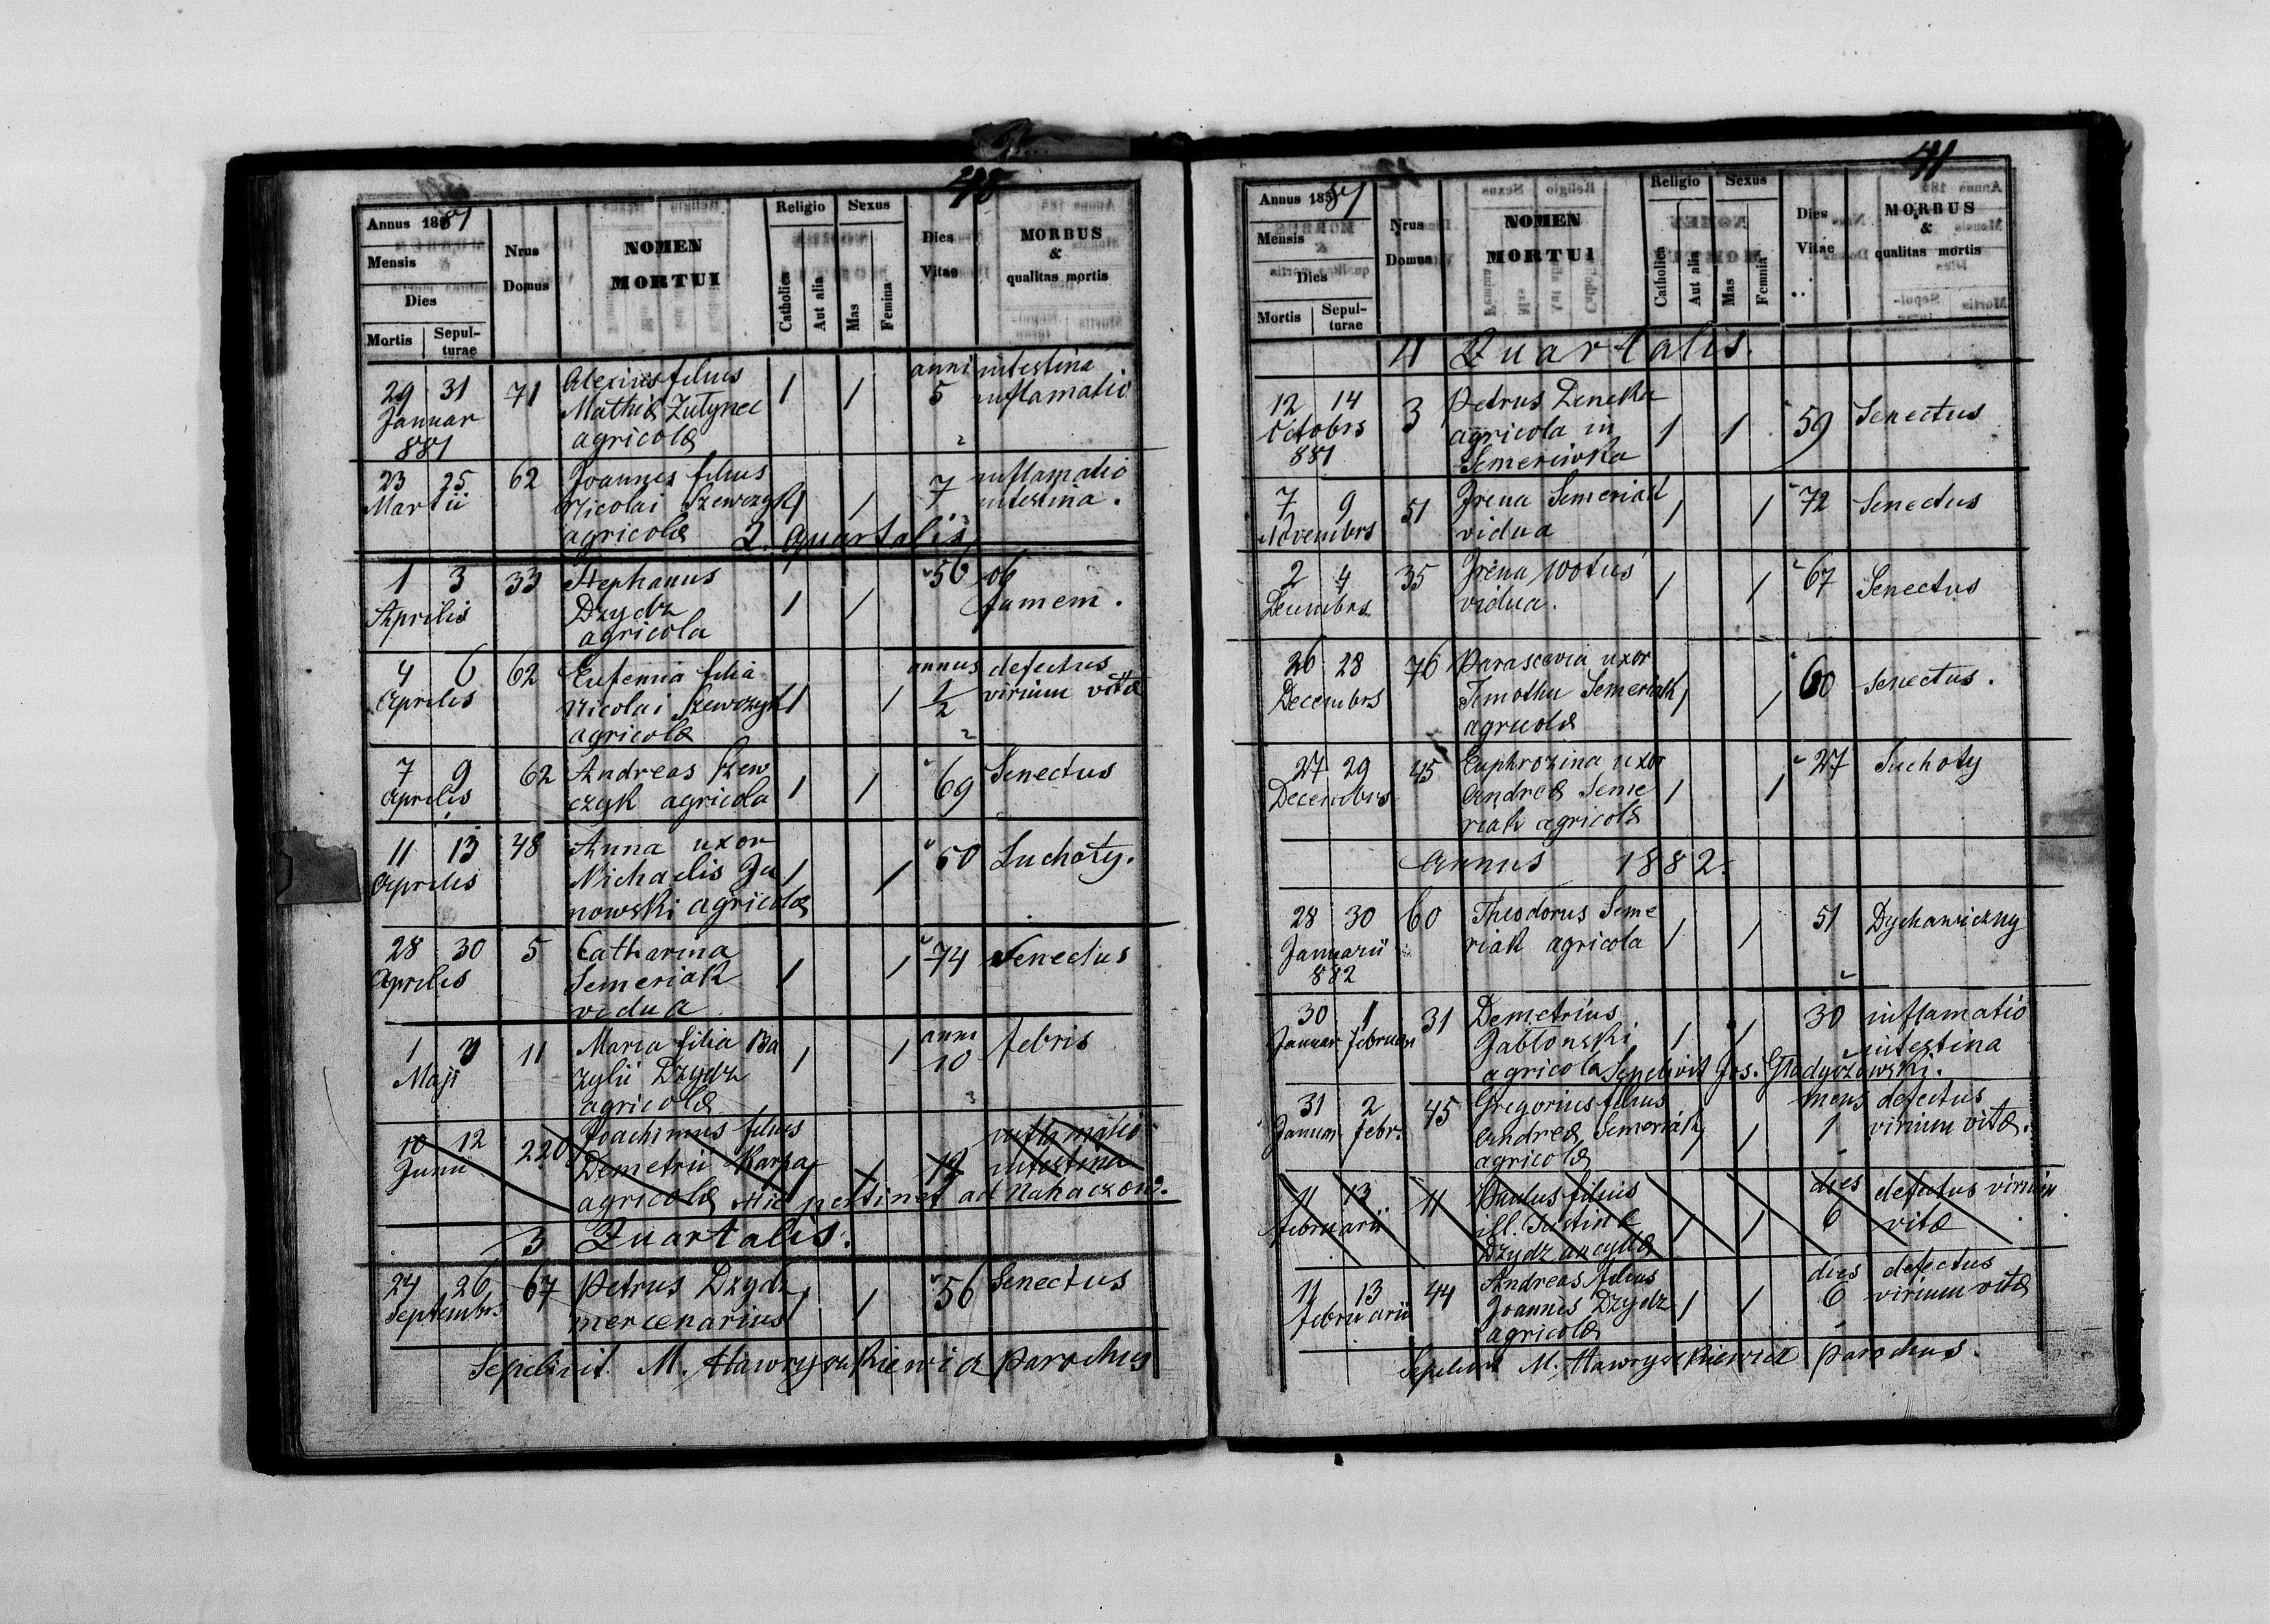 40
Annus 1881
Mensis
Dies
Mortis Sepulturae
Nrus Domus
NOMEN MORTUI
Religio
Catholica
Aut alia
Sexus
Mas
Femina
Dies Vitae
MORBUS & qualitas mortis
29 31 71 Alexius filius 1 1 anni intestina
Januar Mathiæ Zutynec 5 inflamatio
881 agricolæ
23 25 62 Joannes filius 7 inflamatio
Martii Nicolai Szewczyk 1 1 intestina.
agricolæ
2. Quartalis
1 3 33 Stephanus 56 ob
Aprilis Dzydz 1 1 famem.
agricola
4 6 62 Eufemia filia annus defectus
Aprilis Nicolai Szewczyk 1 1 1/2 virium vitæ
agricolæ
7 9 62 Andreas Szew 69 Senectus
Aprilis czyk agricola 1 1
11 13 48 Anna uxor 50 Suchoty.
Aprilis Michaelis Ja 1 1
nowski agricolæ
28 30 5 Catharina 74 Senectus
Aprilis Semeriak 1 1
vidua
1 3 11 Maria filia Ba 1 1 anni febris
Maji zylii Dzydz 10
agricolæ
10 12 220 Joachimus filius inflamatio
Junii Demetrii 12 intestina
agricolæ Hic pertinet ad Nahaczow.
3 Quartalis.
24 26 67 Petrus Dzydz 1 1 56 Senectus
Septembris mercenarius
Sepelivit M. Hawryszkiewicz parochus
41
Annus 1881
Mensis
Dies
Mortis Sepulturae
Nrus Domus
NOMEN MORTUI
Religio
Catholica
Aut alia
Sexus
Mas
Femina
Dies Vitae
MORBUS & qualitas mortis
4 Quartalis.
12 14 3 Petrus 59 Senectus
Octobrs agricola in 1 1
881 Semeriwka
7 9 51 Irena Semeriak 1 1 72 Senectus
Novembrs vidua
2 4 35 Irena Wotus 1 1 67 Senectus
Decembrs vidua.
26 28 76 Parascevia uxor 60 Senectus.
Decembrs Timothei Semeriak 1 1
agricolæ
27 29 45 Euphrozina uxor 27 Suchoty
Decembrs Andreæ Seme 1 1
riak agricolæ
Annus 1882.
28 30 60 Theodorus Seme 51 Dychawiczny
Januarii riak agricola 1 1
882
30 1 31 Demetrius 30 inflamatio
Januar februar Jabłonski 1 1 intestina
agricola Sepelivit Jos. Gładyszowski.
31 2 45 Gregorius filius mens defectus
Januar febr. Andreæ Semeriak 1 1 1 virium vitæ.
agricolæ
11 13 11 Paulus filius dies defectus virium
februarii ill. Justinæ 1 1 6 vitæ
Dzydz ancyllæ
11 13 44 Andreas filius dies defectus
februarii Joannes Dzydz 1 1 6 virium vitæ
agricolæ
Sepelivit M. Hawryszkiewicz parochus.